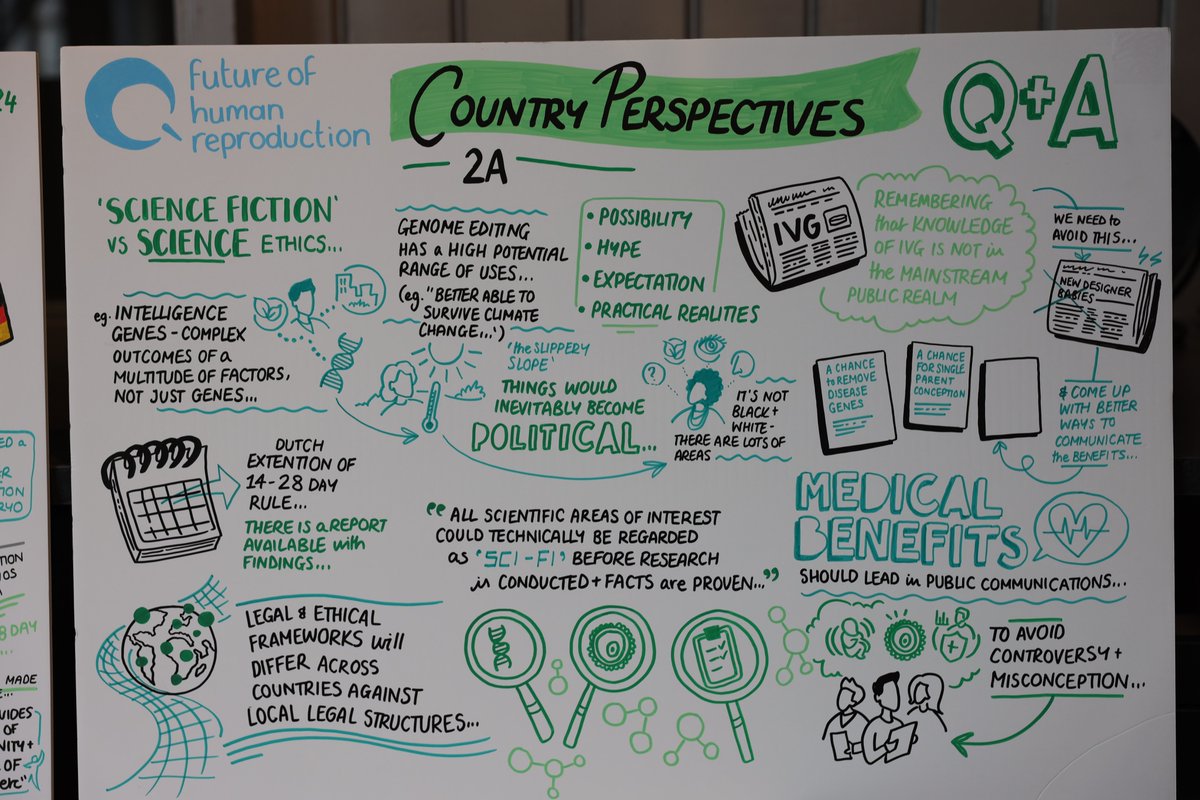 24
future of
human
reproduction
COUNTRY PERSPECTIVES
2A
Q+A
'SCIENCE FICTION'
vs SCIENCE ETHICS...
eg. INTELLIGENCE
GENES - COMPLEX
OUTCOMES OF a
MULTITUDE OF FACTORS,
NOT JUST GENES...
GENOME EDITING
HAS A HIGH POTENTIAL
RANGE OF USES...
(eg. "BETTER ABLE TO
SURVIVE CLIMATE
CHANGE...')
• POSSIBILITY
• HYPE
• EXPECTATION
• PRACTICAL REALITIES
IVG
REMEMBERING
that KNOWLEDGE
OF IVG IS NOT in
the MAINSTREAM
PUBLIC REALM
WE NEED to
AVOID THIS...
NEW DESIGNER
BABIES
'the SLIPPERY
SLOPE'
THINGS WOULD
INEVITABLY BECOME
POLITICAL...
?
IT'S NOT
BLACK +
WHITE -
THERE ARE LOTS OF
AREAS
A CHANCE
to REMOVE
DISEASE
GENES
A CHANCE
FOR SINGLE
PARENT
CONCEPTION
& COME UP
WITH BETTER
WAYS TO
COMMUNICATE
the BENEFITS...
DUTCH
EXTENTION OF
14-28 DAY
RULE...
THERE IS a REPORT
AVAILABLE with
FINDINGS...
"ALL SCIENTIFIC AREAS OF INTEREST
COULD TECHNICALLY BE REGARDED
as 'SCI-FI' BEFORE RESEARCH
is CONDUCTED + FACTS are PROVEN..."
MEDICAL
BENEFITS
SHOULD LEAD in PUBLIC COMMUNICATIONS...
LEGAL & ETHICAL
FRAMEWORKS will
DIFFER ACROSS
COUNTRIES AGAINST
LOCAL LEGAL STRUCTURES...
TO AVOID
CONTROVERSY +
MISCONCEPTION...
MADE
OF
NITY +
OF